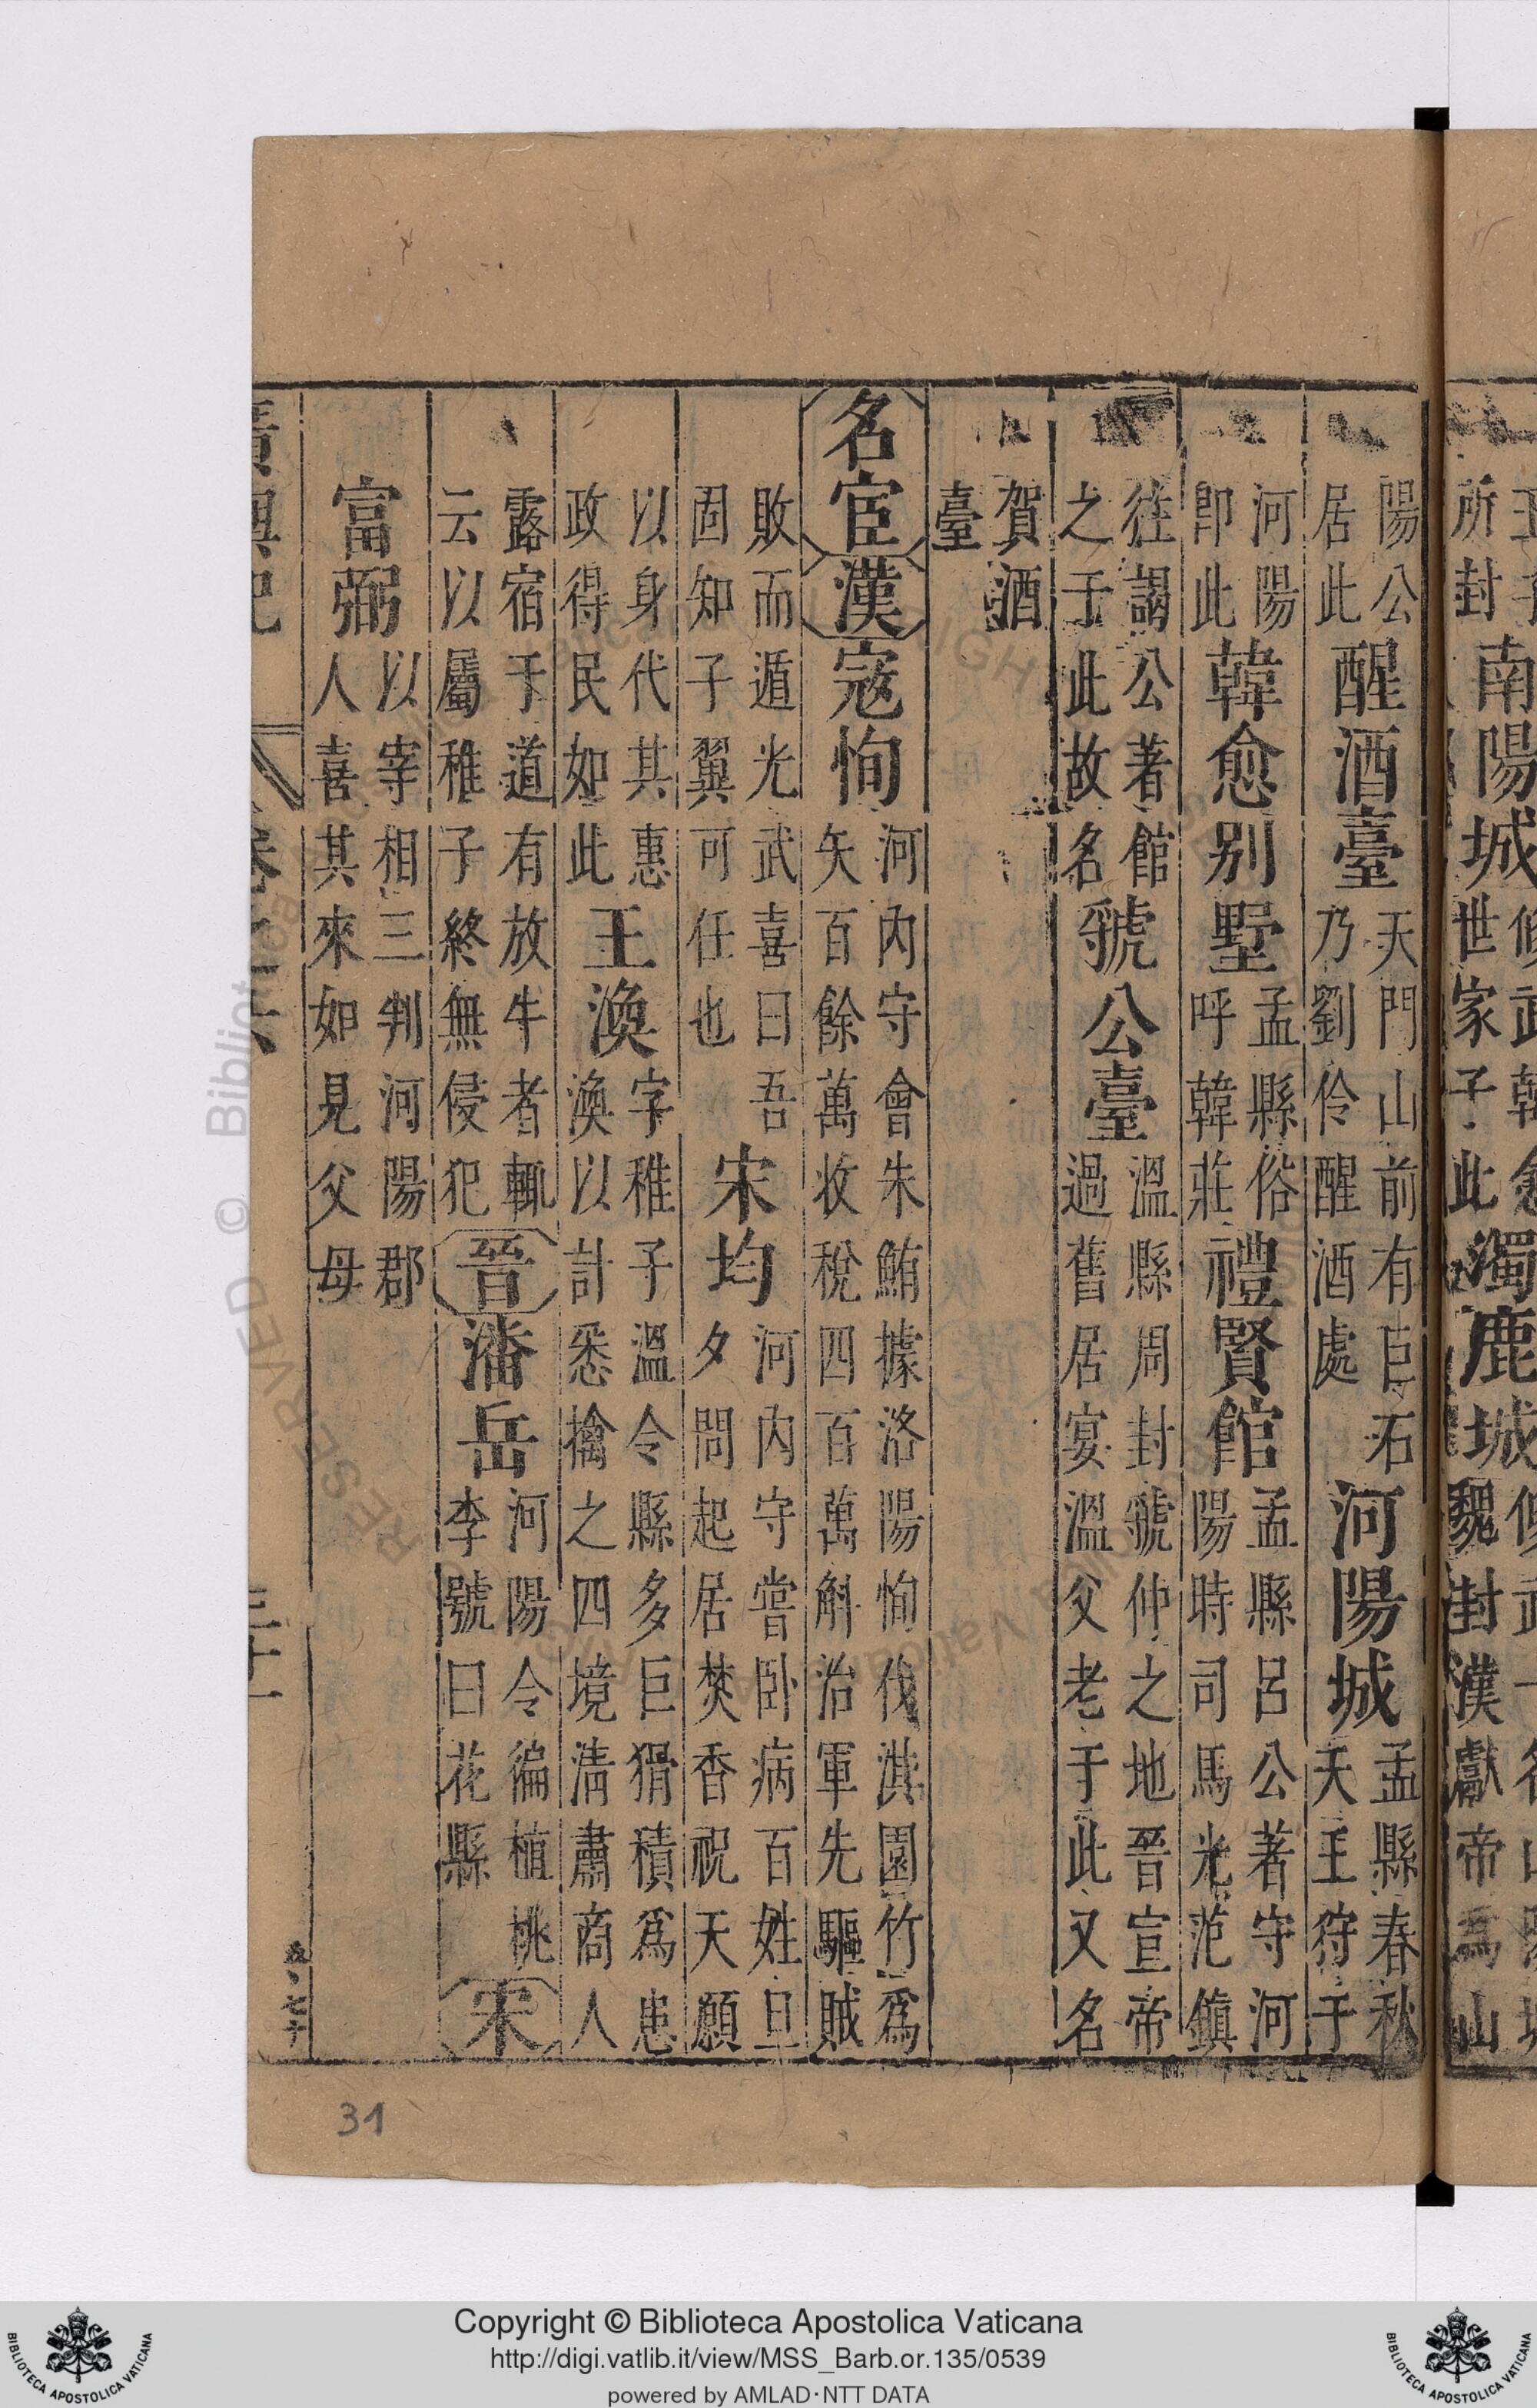 陽公居此醒酒臺天門山前有巨石乃劉伶醒酒處河陽城孟縣春秋天王狩于
河陽卽此韓愈别墅孟縣俗呼韓莊禮賢館孟縣呂公著守河陽時司馬光范鎮
往謁公著館之于此故名虢公臺溫縣周封虢仲之地晉宣帝過舊居宴溫父老于此又名
賀酒臺
名宦漢寇恂河內守會朱鮪據洛陽恂伐淇園竹爲矢百餘萬收稅四百萬斛治軍先驅賊
敗而遁光武喜曰吾固知子翼可任也宋均河內守嘗卧病百姓旦夕問起居焚香祝天願
以身代其惠政得民如此王渙字稚子溫令縣多巨猾積爲患渙以計悉擒之四境淸肅商人
露宿于道有放牛者輒云以屬稚子終無侵犯晉潘岳河陽令徧植桃李號曰花縣宋
富弼以宰相三判河陽郡人喜其來如見父母
31
Copyright © Biblioteca Apostolica Vaticana
http://digi.vatlib.it/view/MSS_Barb.or.135/0539
powered by AMLAD·NTT DATA
BIBLIOTECA APOSTOLICA VATICANA
BIBLIOTECA APOSTOLICA VATICANA